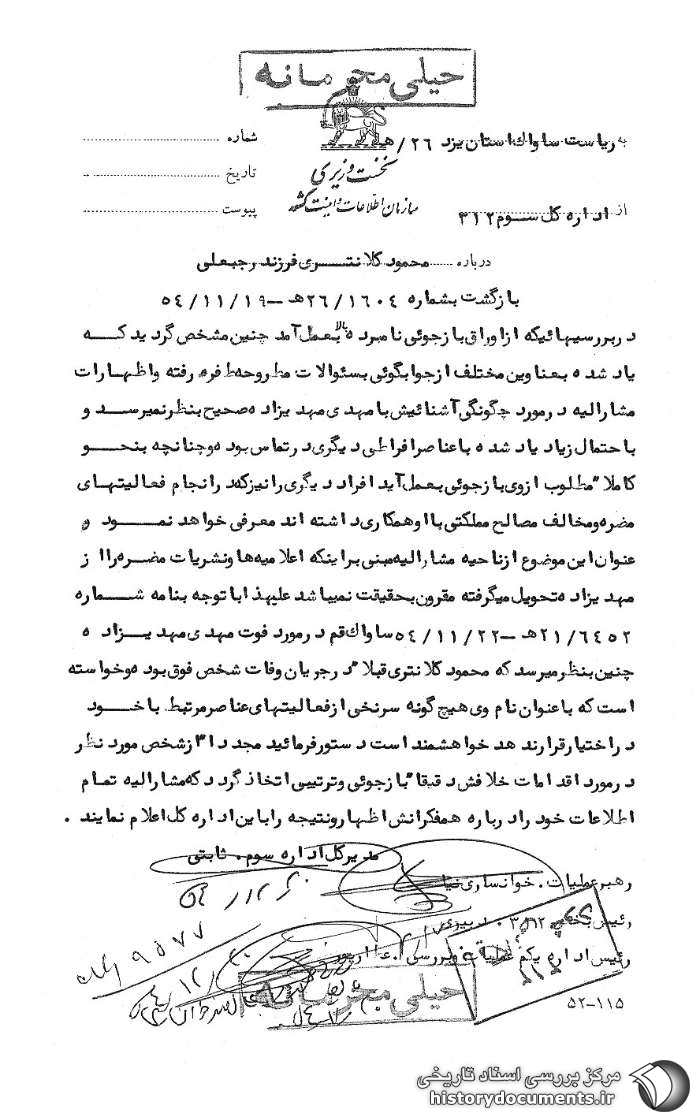 خیلی محرمانه
به ریاست ساواک استان یزد ۲۶/ه
شماره
نخست وزیری
تاریخ
سازمان اطلاعات و امنیت کشور
از اداره کل سوم ۳۱۲
پیوست
درباره محمود کلانتری فرزند رجبعلی
بازگشت بشماره ۲۶/۱۶۰۴هـ - ۵۴/۱۱/۱۹
در بررسیهائیکه از اوراق بازجوئی نامبرده بالا بعمل آمد چنین مشخص گردید که
یاد شده بعناوین مختلف از جوابگوئی بسئوالات مطروحه طفره رفته و اظهارات
مشارالیه در مورد چگونگی آشنائیش با مهدی مهدیزاده صحیح بنظر نمیرسد و
باحتمال زیاد یاد شده با عناصر افراطی دیگری در تماس بوده و چنانچه بنحو
کاملا" مطلوب از وی بازجوئی بعمل آید افراد دیگری را نیز که در انجام فعالیتهای
مضره و مخالف مصالح مملکتی با او همکاری داشته اند معرفی خواهد نمود و
عنوان این موضوع از ناحیه مشارالیه مبنی بر اینکه اعلامیه ها و نشریات مضره را از
مهدیزاده تحویل میگرفته مقرون بحقیقت نمیباشد علیهذا با توجه بنامه شماره
۲۱/۶۴۵۲هـ - ۵۴/۱۱/۲۲ ساواک قم در مورد فوت مهدی مهدیزاده
چنین بنظر میرسد که محمود کلانتری قبلا" در جریان وفات شخص فوق بوده و خواسته
است که با عنوان نام وی هیچ گونه سرنخی از فعالیتهای عناصر مرتبط با خود
در اختیار قرار ندهد خواهشمند است دستور فرمائید مجددا از شخص مورد نظر
در مورد اقدامات خلافش دقیقا" بازجوئی و ترتیبی اتخاذ گردد که مشارالیه تمام
اطلاعات خود را درباره همفکرانش اظهار و نتیجه را باین اداره کل اعلام نمایند .
مدیرکل اداره سوم . ثابتی
رهبر عملیات . خوانساری نیا
رئیس بخش ۳۱۲ . دبیری
رئیس اداره یکم عملیات و بررسی .
۹۵۷۷
خیلی محرمانه
۵۲-۱۱۵
مرکز بررسی اسناد تاریخی
historydocuments.ir